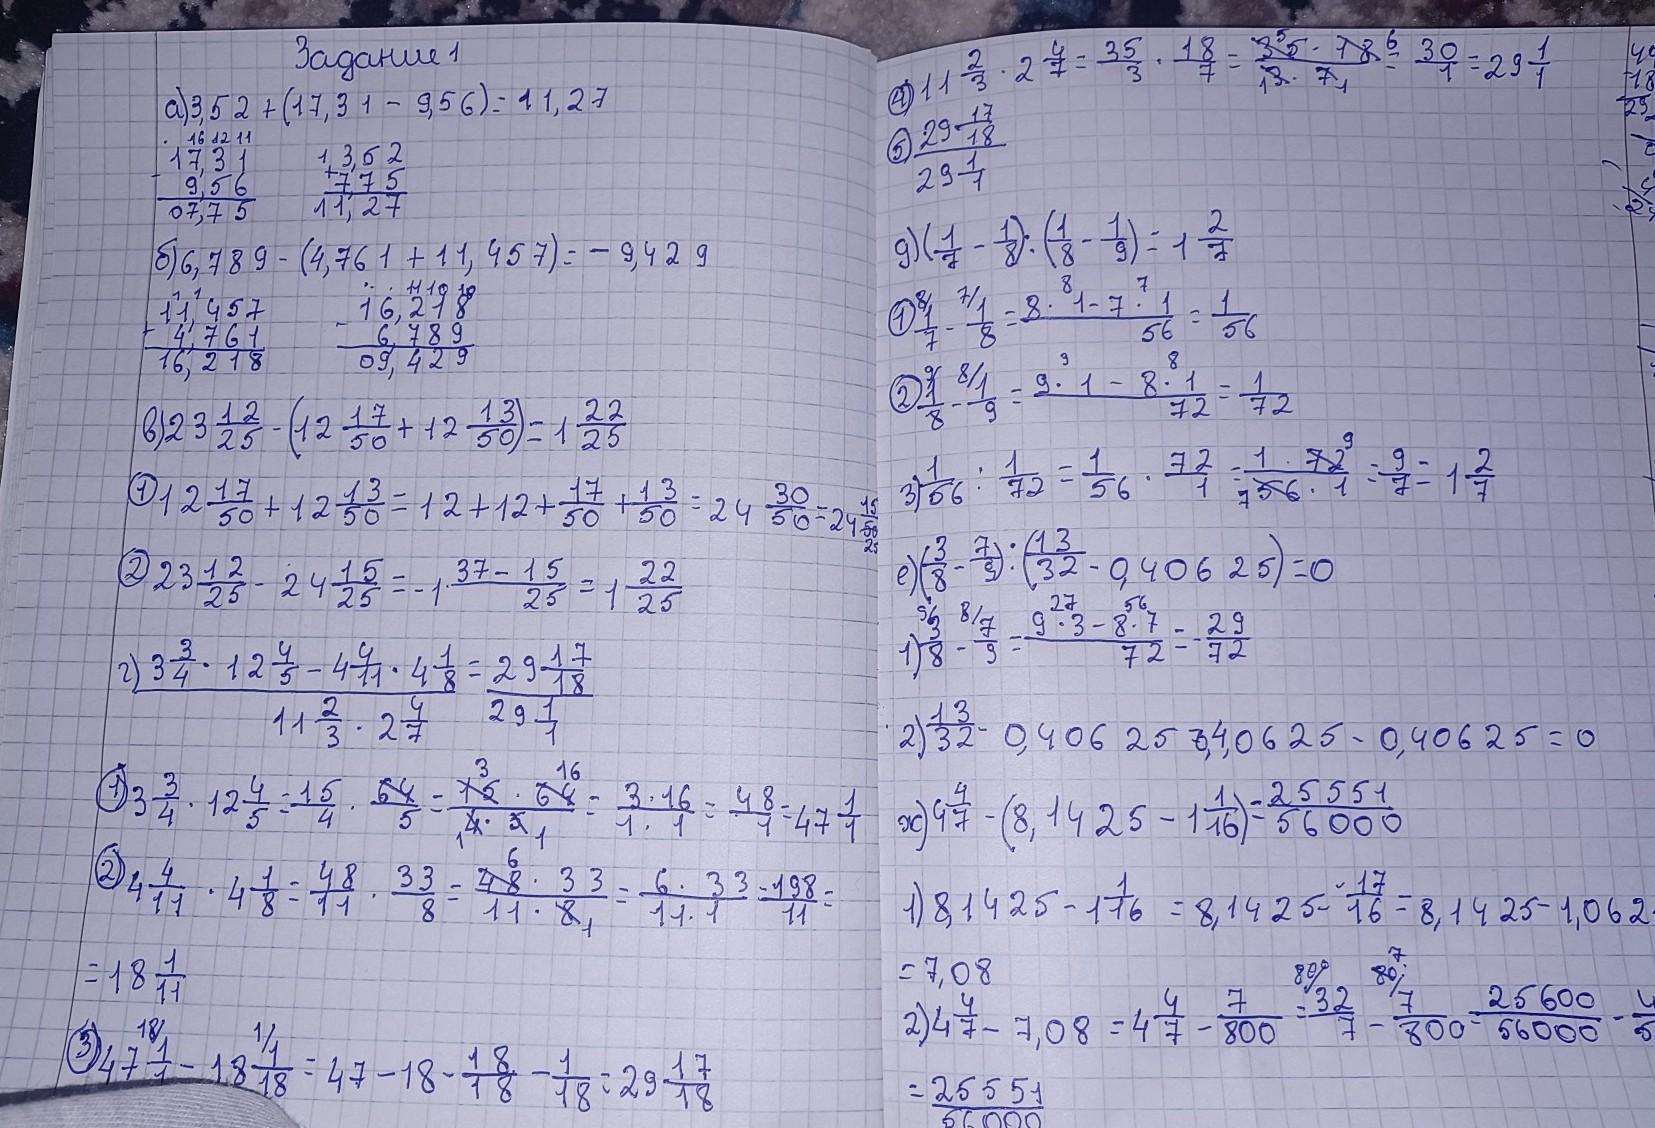 Задание 1
а) 3,52 + (17,31 - 9,56) = 11,27
16 12 11
17,31 3,52
- 9,56 + 7,75
07,75 11,27
б) 6,789 - (4,761 + 11,457) = - 9,429
11,457 16,218
+ 4,761 - 6,789
16,218 09,429
в) 23 12/25 - (12 17/50 + 12 13/50) = 1 22/25
① 12 17/50 + 12 13/50 = 12 + 12 + 17/50 + 13/50 = 24 30/50 = 24
② 23 12/25 - 24 15/25 = -1 37 - 15/25 = 1 22/25
г) 3 3/4 · 12 4/5 - 4 4/11 · 4 1/8 = 29 17/18
11 2/3 · 2 4/7 29 1/1
① 3 3/4 · 12 4/5 = 15/4 · 64/5 = 15 · 64/4 · 5 = 3 · 16/1 · 1 = 48/1 = 47 1/1
② 4 4/11 · 4 1/8 = 48/11 · 33/8 = 48 · 33/11 · 8 = 6 · 33/11 · 1 = 198/11 =
= 18 1/11
③ 47 1/1 - 18 1/18 = 47 - 18 - 18/18 - 1/18 = 29 17/18
④ 11 2/3 · 2 4/7 = 35/3 · 18/7 = 35 · 18/3 · 7 = 30/1 = 29 1/1
⑤ 29 17/18
29 1/1
д) (1/7 - 1/8) : (1/8 - 1/9) = 1 2/7
① 1/7 - 1/8 = 8 · 1 - 7 · 1/56 = 1/56
② 1/8 - 1/9 = 9 · 1 - 8 · 1/72 = 1/72
3) 1/56 : 1/72 = 1/56 · 72/1 = 1 · 72/56 · 1 = 9/7 = 1 2/7
е) (3/8 - 7/9) : (13/32 - 0,40625) = 0
1) 3/8 - 7/9 = 9 · 3 - 8 · 7/72 = - 29/72
2) 13/32 - 0,40625 = 0,40625 - 0,40625 = 0
ж) 4 4/7 - (8,1425 - 1 1/16) = 25551/56000
1) 8,1425 - 1 1/16 = 8,1425 - 17/16 = 8,1425 - 1,062
= 7,08
2) 4 4/7 - 7,08 = 4 4/7 - 7/800 = 32/7 - 7/800 = 25600/56000 -
= 25551/56000